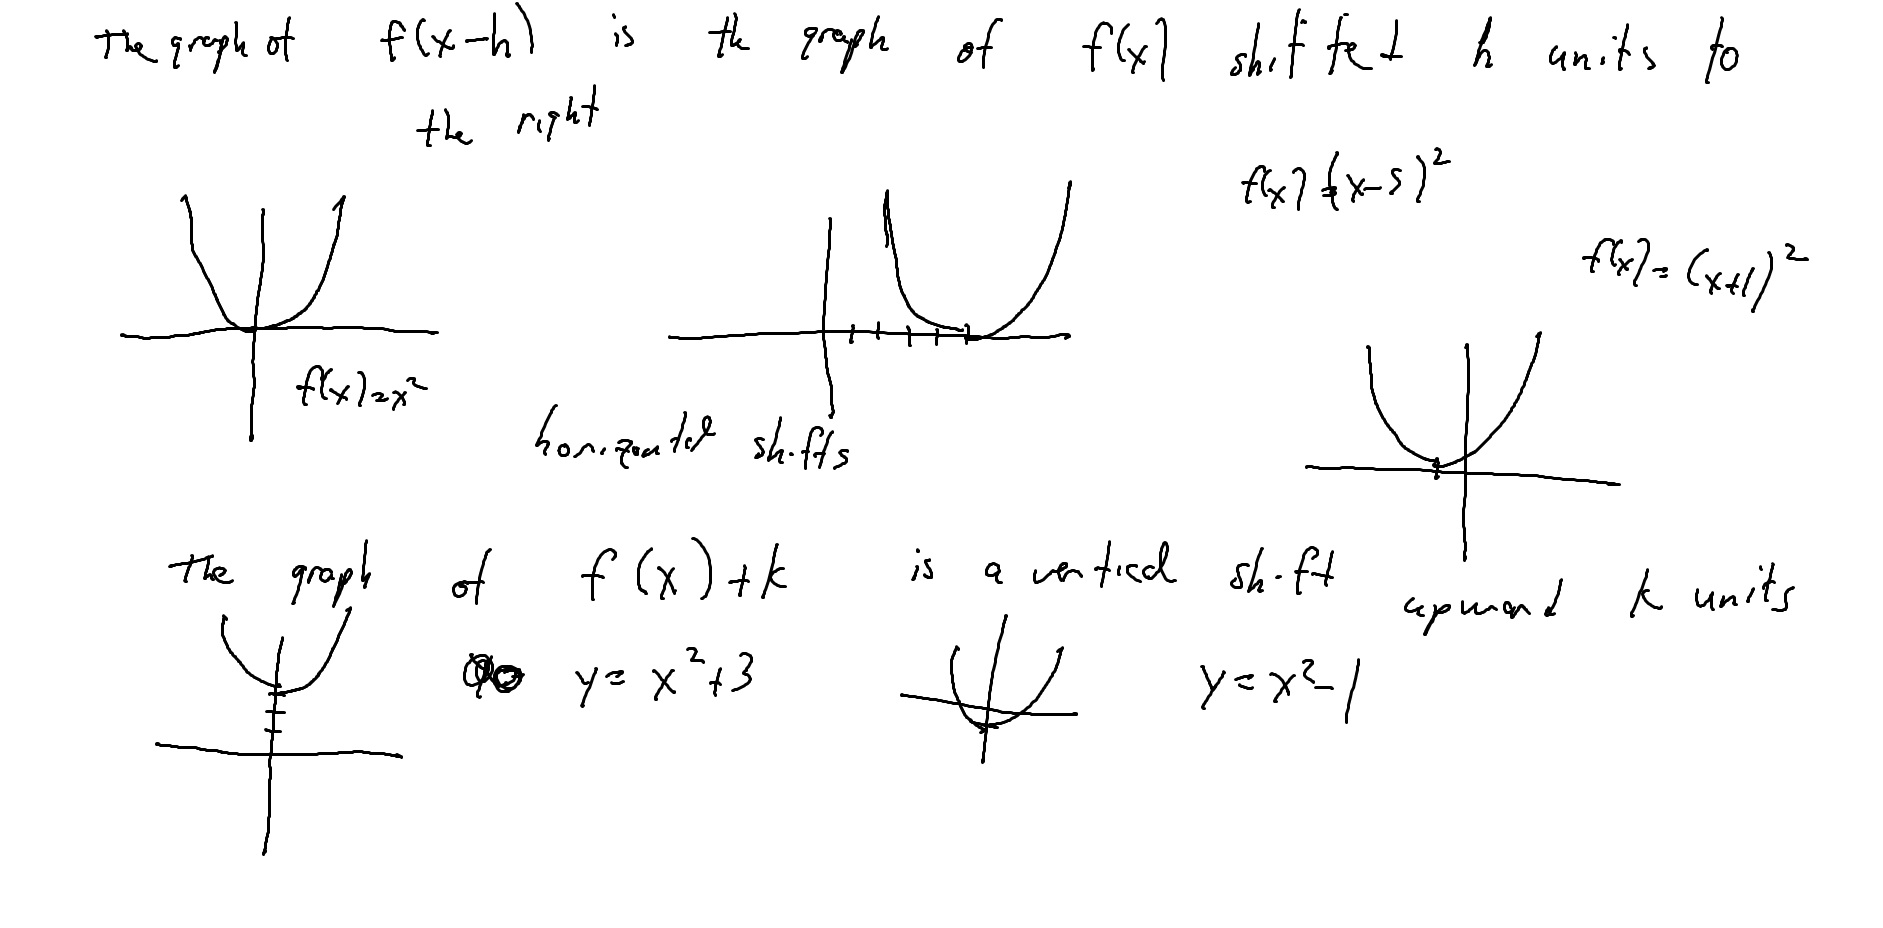 The graph of f(x-h) is the graph of f(x) shifted h units to
the right
f(x)=(x-5)²
f(x)=(x+1)²
f(x)=x²
horizontal shifts
The graph of f(x)+k is a vertical shift upward k units
y=x²+3
y=x²-1